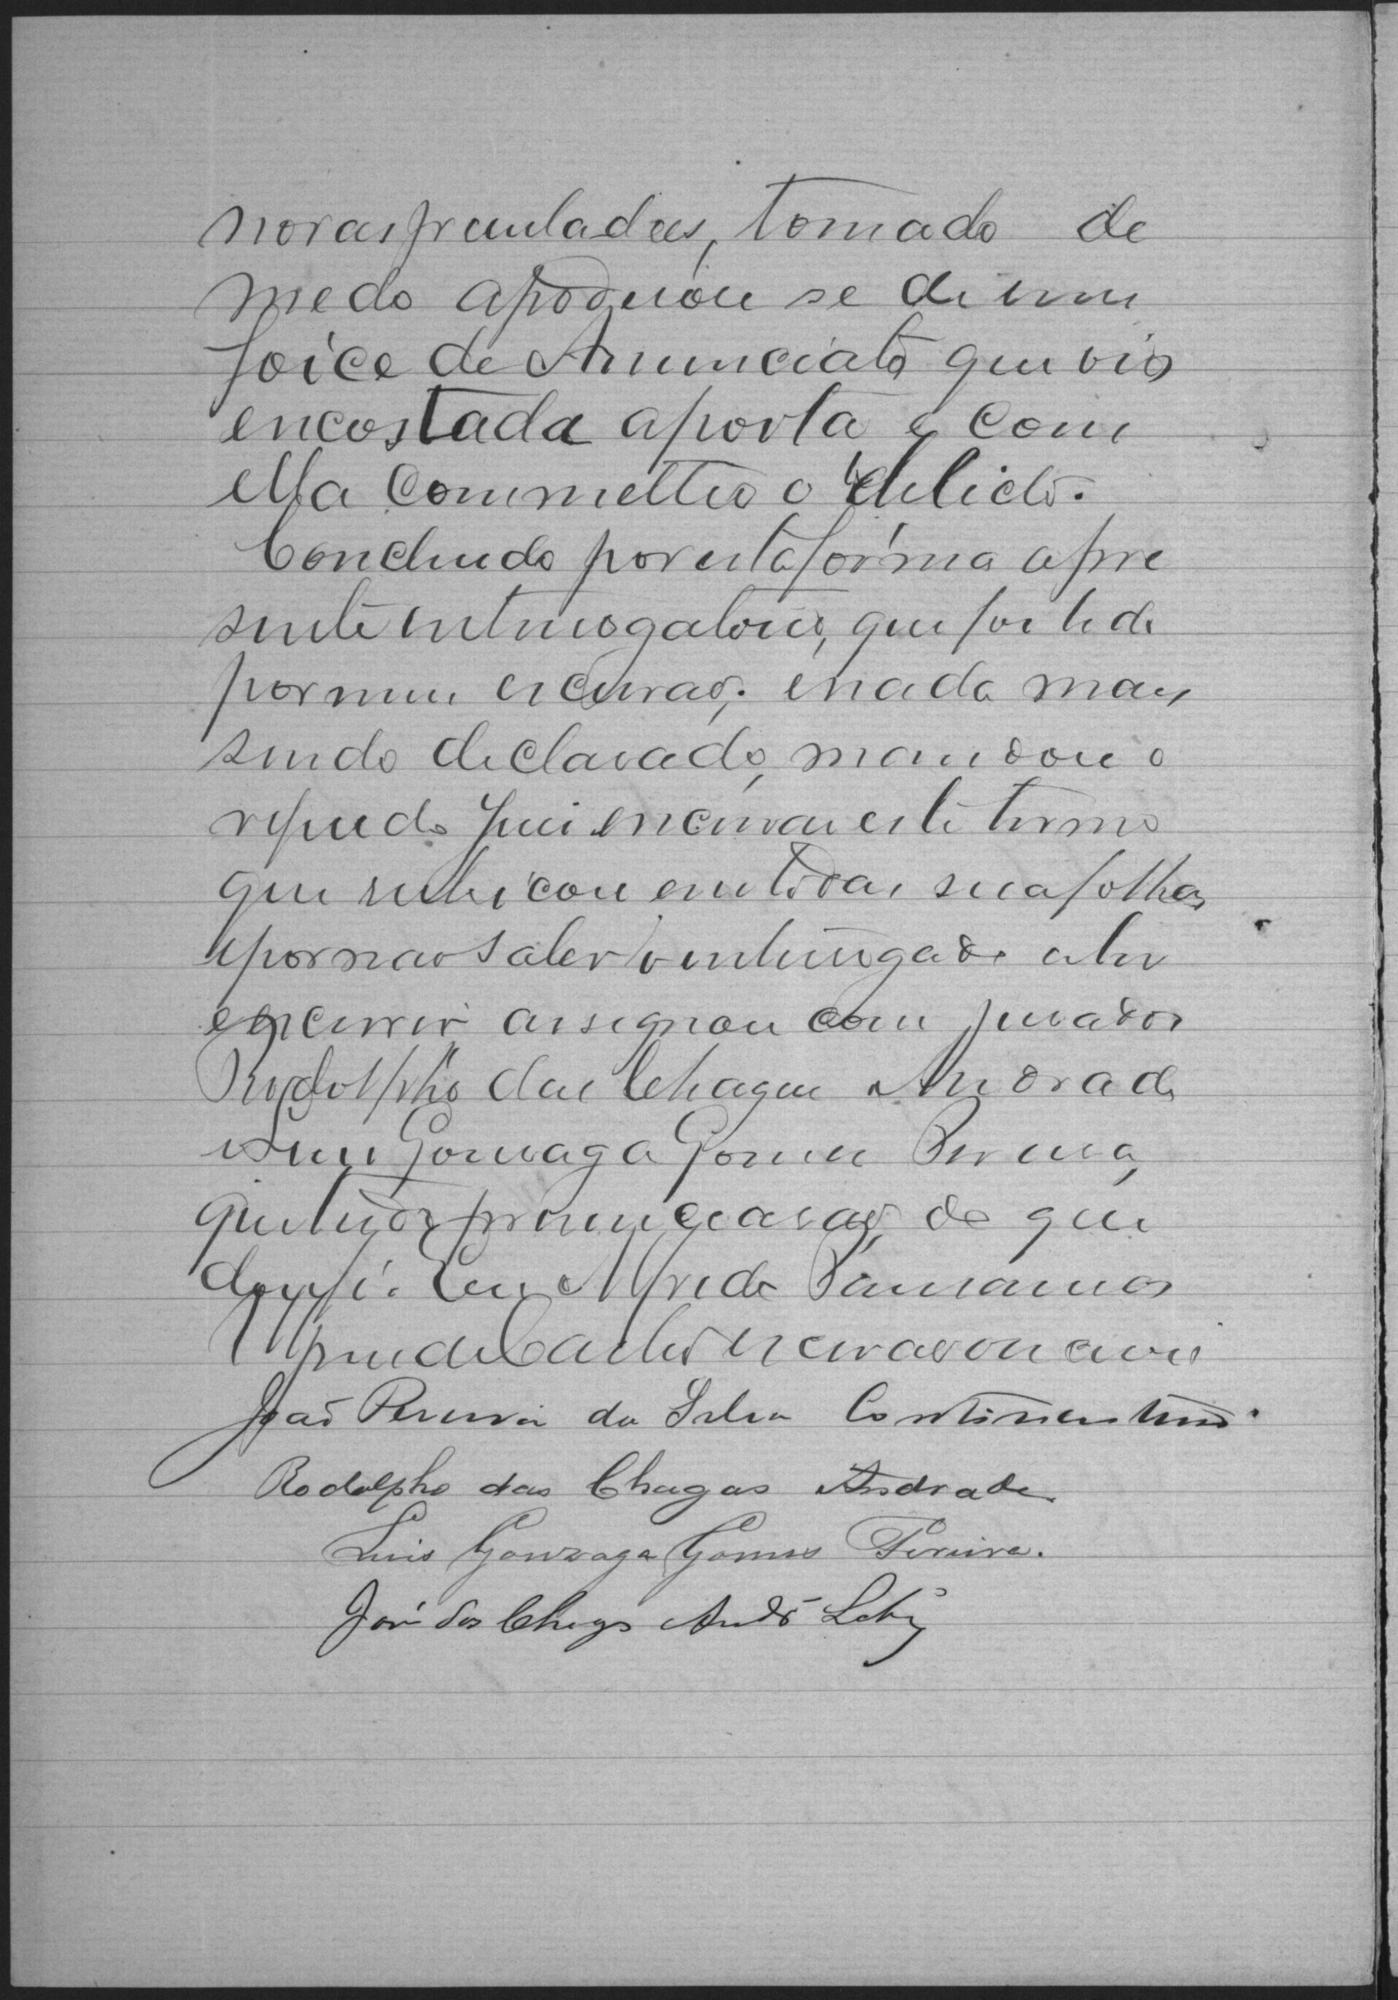 tomado de
medo apoderou se de uma
foice de Anunciato que vio
encostada a porta e com
ella commetteo o delicto.
Concluido por esta fórma o pre
sente interrogatorio, que foi lido
por mim escrivão; e nada mais
sendo declarado, mandou o
juiz encerrar este termo
que rubricou em todas suas folhas
e por nao saber o interrogado ler
e escrever assignou com jurador
Rodolpho das Chagas Andrade
e Luis Gonzaga Gomes Pereira,
do que
dou fé. Eu Alfredo
escrivão o escrevi
João Pereira da Silva Continentino.
Rodolpho das Chagas Andrade
Luis Gonzaga Gomes Pereira.
José das Chagas Andrade